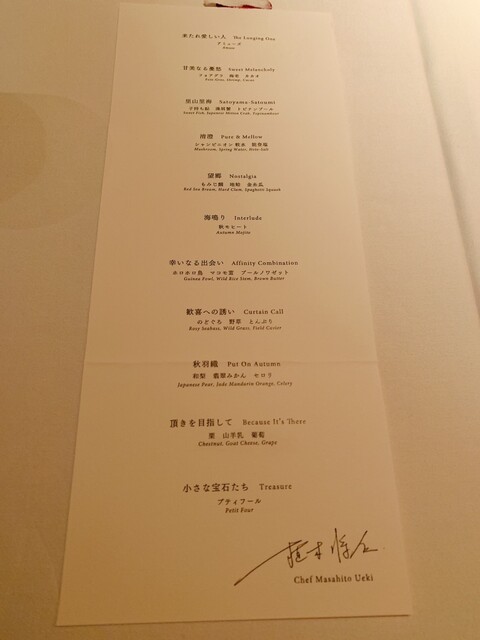 来たれ愛しい人 The Longing One
アミューズ
Amuse
甘美なる憂愁 Sweet Melancholy
フォアグラ 海老 カカオ
Foie Gras, Shrimp, Cacao
里山里海 Satoyama-Satoumi
子持ち鮎 蓮胡蟹 トピナンブール
清澄 Pure & Mellow
シャンピニオン 軟水 能登塩
Mushroom, Spring Water, Noto Salt
望郷 Nostalgia
もみじ鯛 地蛤 金糸瓜
Red Sea Bream, Hard Clam, Spaghetti Squash
海鳴り Interlude
秋モヒート
Autumn Mojito
幸いなる出会い Affinity Combination
ホロホロ鳥 マコモ茸 ブールノワゼット
Guinea Fowl, Wild Rice Stem, Brown Butter
歓喜への誘い Curtain Call
のどぐろ 野草 とんぶり
Rosy Seabass, Wild Grass, Field Caviar
秋羽織 Put On Autumn
和梨 翡翠みかん セロリ
Japanese Pear, Jade Mandarin Orange, Celery
頂きを目指して Because It's There
栗 山羊乳 葡萄
Chestnut, Goat Cheese, Grape
小さな宝石たち Treasure
プティフール
Petit Four
植木将仁
Chef Masahito Ueki